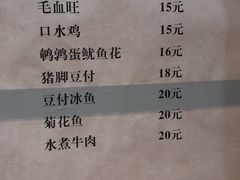 毛血旺 15元
口水鸡 15元
鹌鹑蛋鱿鱼花 16元
猪脚豆付 18元
豆付冰鱼 20元
菊花鱼 20元
水煮牛肉 20元